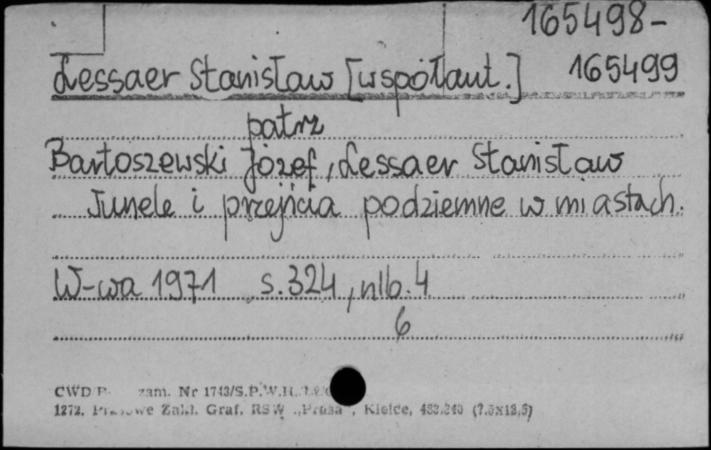 165498-
Lessaer Stanisław [współaut.] 165499
patrz
Bartoszewski Józef, Lessaer Stanisław
Tunele i przejścia podziemne w miastach.
W-wa 1971 s.324, nlb.4
6
CWD zam. Nr 1743/S.P.W.H.
1272. Zakł. Graf. RSW „Prasa", Kielce, (7.5x12,5)